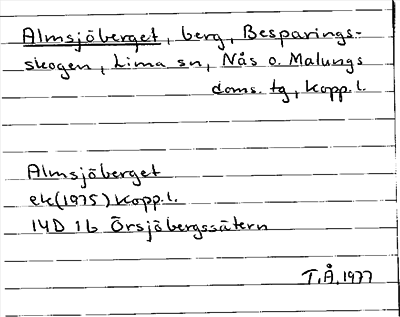 Almsjöberget, berg, Besparings-
skogen, Lima sn, Nås o. Malungs
doms. tg, Kopp. l.
Almsjöberget
ek(1975) Kopp. l.
14D 1b Örsjöbergssätern
T.Å. 1977